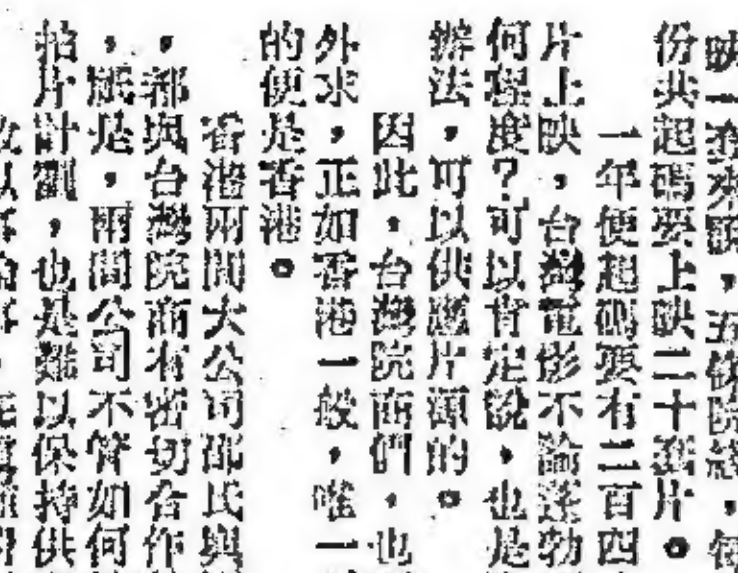 映一套來說,五條院線,每
份共起碼要上映二十套片。
一年便起碼要有二百四
片上映,台灣電影不論蓬勃
何程度?可以肯定說,也是
辦法,可以供應片源的。
因此,台灣院商們,也
外求,正如香港一般,唯一
的便是香港。
香港兩間大公司邵氏與
,都與台灣院商有密切合作
,祇是,兩間公司不管如何
拍片計劃,也是難以保持供